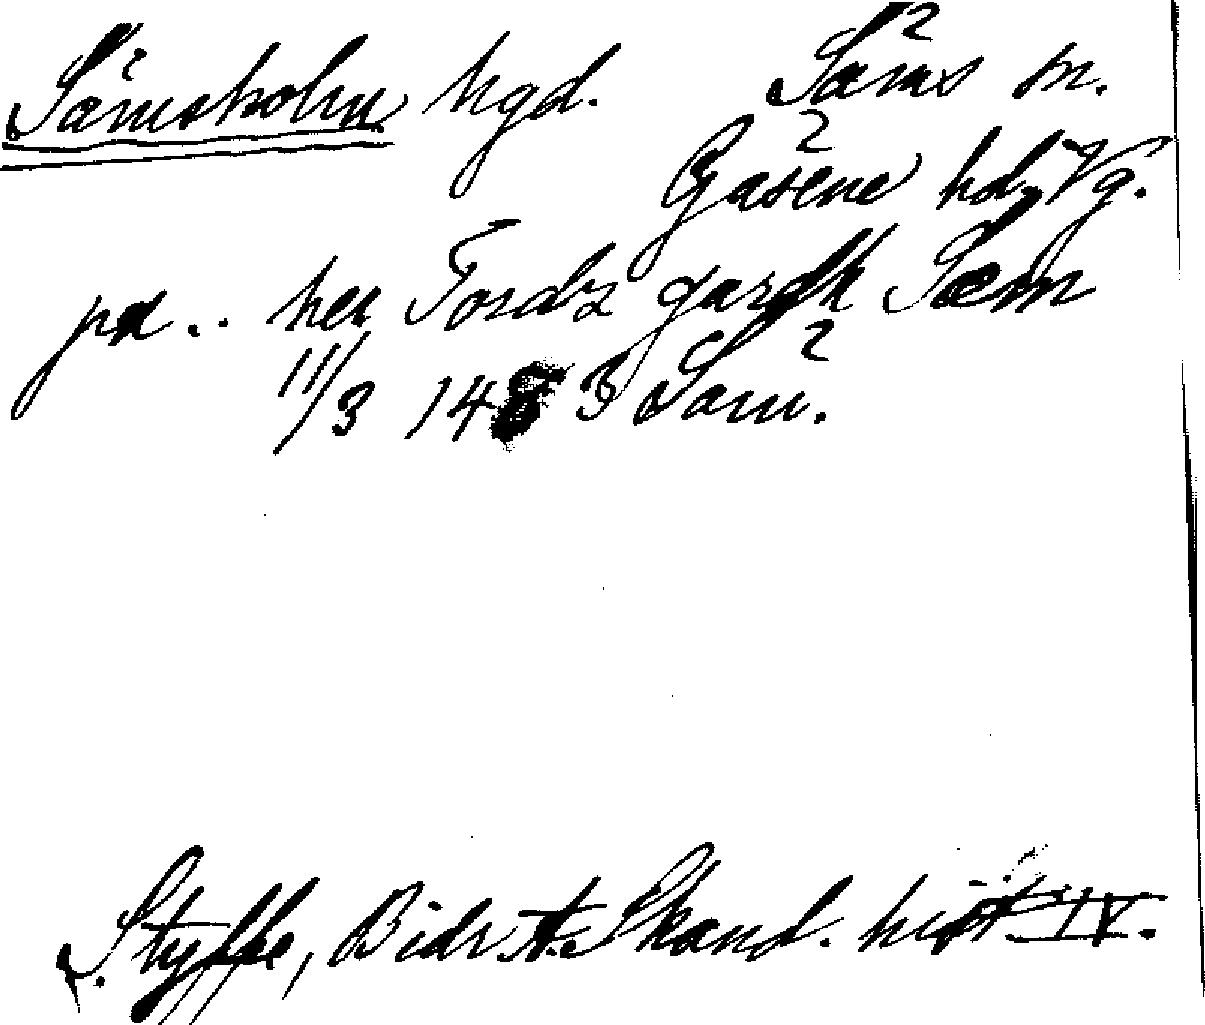 Sämsholm hgd. Säms sn.
Gäsene hd, Vg.
pa .. her Tordz gardh Sæm
11/3 1483 Säm.
Styffe, Bidr. t. Skand. hist. IV.